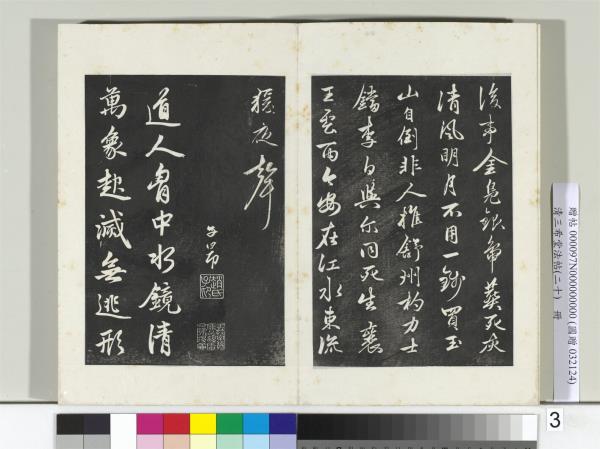 後事金鳧銀葬死灰
清風明月不用一錢買玉
山自倒非人推舒州杓力士
鐺李白與爾同死生襄
王雲雨今安在江水東流
猿夜聲
子昂
趙氏子昂
道人胷中水鏡清
萬象起滅無逃形
贈帖 000097N000000000 (圖贈 032124)
清三希堂法帖(二十) 冊
3